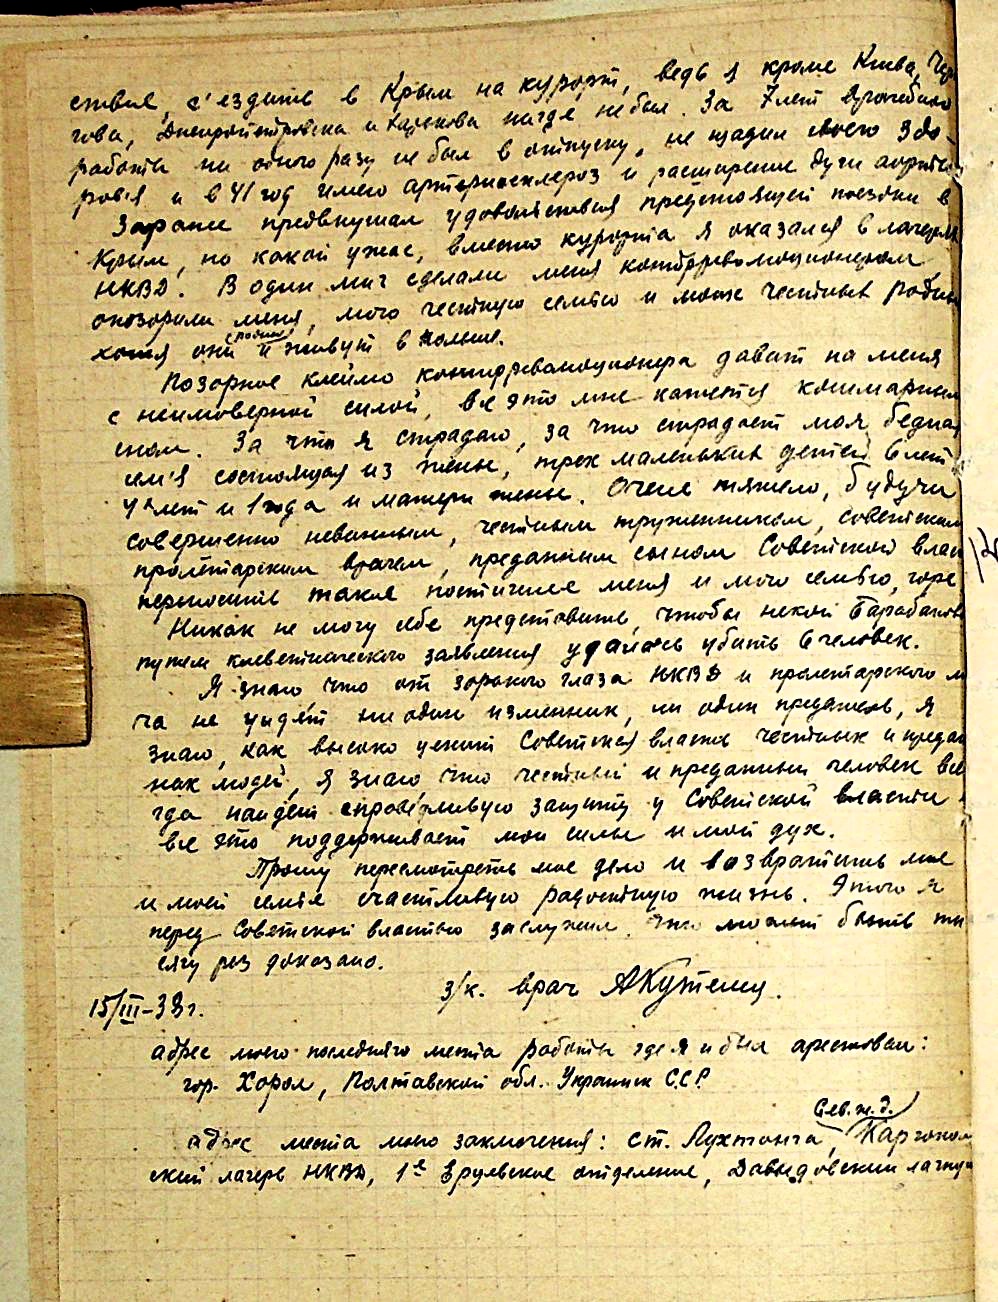 ствие, с'ездить в Крым на курорт, ведь я кроме Киева, Чер
гова, Днепропетровска и Харькова нигде не был. За 7 лет врачебной
работы ни одного разу не был в отпуску, не щадил своего здо-
ровья и в 41 год имею артериосклероз и расширение дуги аорты.
Заранее предвкушал удовольствия предстоящей поездки в
Крым, но какой ужас, вместо курорта я оказался в лагерях
НКВД. В один миг сделали меня контрреволюционером,
опозорили меня, мою честную семью и моих честных родных
хотя они (родные) и живут в Польше.
Позорное клеймо контрреволюционера давит на меня
с неимоверной силой, все это мне кажется кошмарным
сном. За что я страдаю, за что страдает моя бедная
сем'я состоящая из жены, трех маленьких детей 6 лет
4х лет и 1 года и матери жены. Очень тяжело, будучи
совершенно невинным, честным труженником, советским
пролетарским врачем, преданным сыном Советской влас
переносить такое постигшее меня и мою семью, горе
Никак не могу себе представить, чтобы некой Барабанове
путем клеветнического заявления удалось убить 6 человек.
Я знаю что от зоркого глаза НКВД и пролетарского м
ча не уйдет ни один изменник, ни один предатель, я
знаю, как высоко ценит Советская власть честных и предан
ных людей, я знаю что честный и преданный человек все
гда найдет справедливую защиту у Советской власти
все это поддерживает мои силы и мой дух.
Прошу пересмотреть мое дело и возвратить мне
и моей семье счастливую радостную жизнь. Этого я
перед Советской властью заслужил, что может быть ты
сячу раз доказано.
з/к. врач АКутенц.
15/III-39г.
адрес моего последнего места работы где я и был арестован:
гор. Хорол, Полтавской обл. Украинск С.С.Р.
Сев. ж.д.
адрес места моего заключения: ст. Лухтонга, Каргополь
ский лагерь НКВД, 1е отделение, Давыдовский лагпун